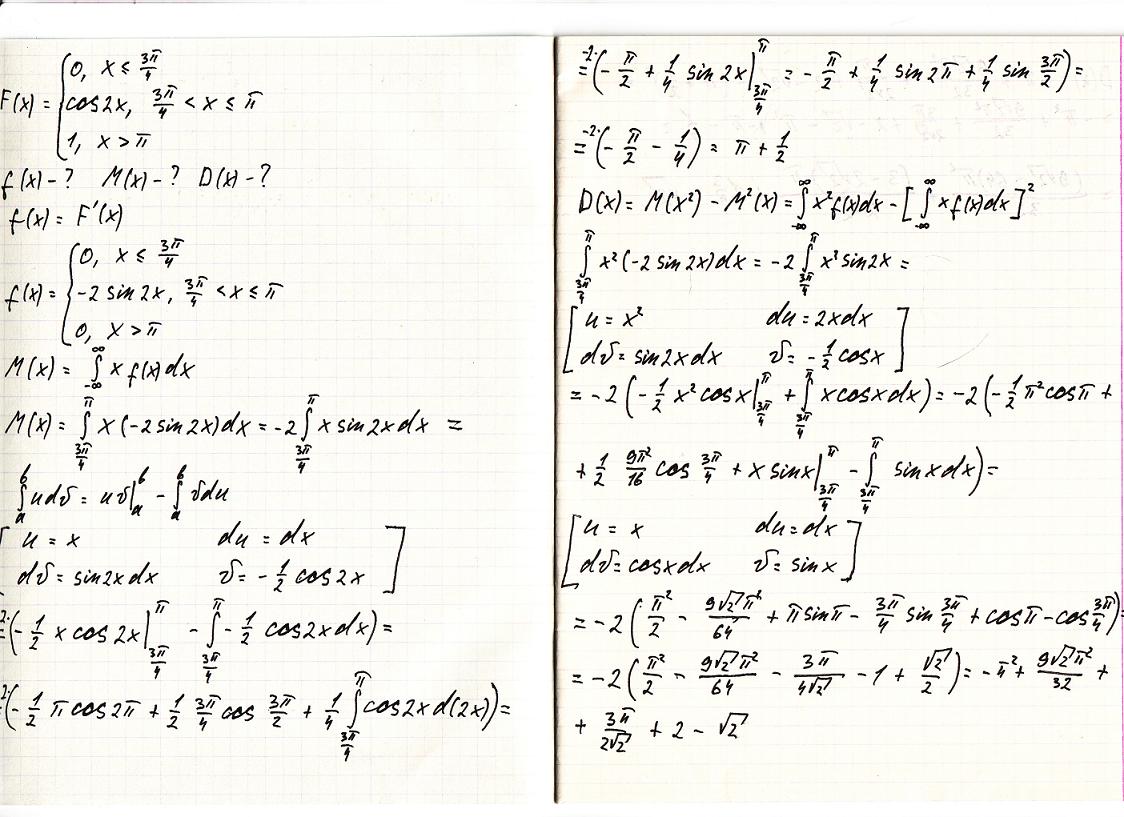 F(x) = { 0, x ≤ 3π/4
cos2x, 3π/4 < x ≤ π
1, x > π
f(x) - ? M(x) - ? D(x) - ?
f(x) = F'(x)
f(x) = { 0, x ≤ 3π/4
-2 sin 2x, 3π/4 < x ≤ π
0, x > π
M(x) = ∫_{-∞}^{∞} x f(x) dx
M(x) = ∫_{3π/4}^{π} x (-2 sin 2x) dx = -2 ∫_{3π/4}^{π} x sin 2x dx =
∫_a^b u dv = uv |_a^b - ∫_a^b v du
[ u = x du = dx
dv = sin 2x dx v = -1/2 cos 2x ]
=-2·(-1/2 x cos 2x |_{3π/4}^{π} - ∫_{3π/4}^{π} -1/2 cos 2x dx) =
=-2·(-1/2 π cos 2π + 1/2 3π/4 cos 3π/2 + 1/4 ∫_{3π/4}^{π} cos 2x d(2x)) =
=-2·(-π/2 + 1/4 sin 2x |_{3π/4}^{π} = -π/2 + 1/4 sin 2π + 1/4 sin 3π/2) =
=-2·(-π/2 - 1/4) = π + 1/2
D(x) = M(x²) - M²(x) = ∫_{-∞}^{∞} x² f(x) dx - [∫_{-∞}^{∞} x f(x) dx]²
∫_{3π/4}^{π} x² (-2 sin 2x) dx = -2 ∫_{3π/4}^{π} x² sin 2x =
[ u = x² du = 2x dx
dv = sin 2x dx v = -1/2 cos x ]
= -2 (-1/2 x² cos x |_{3π/4}^{π} + ∫_{3π/4}^{π} x cos x dx) = -2 (-1/2 π² cos π +
+ 1/2 9π²/16 cos 3π/4 + x sin x |_{3π/4}^{π} - ∫_{3π/4}^{π} sin x dx) =
[ u = x du = dx
dv = cos x dx v = sin x ]
= -2 (π²/2 - 9√2π²/64 + π sin π - 3π/4 sin 3π/4 + cos π - cos 3π/4) =
= -2 (π²/2 - 9√2π²/64 - 3π/4√2 - 1 + √2/2) = -π² + 9√2π²/32 +
+ 3π/2√2 + 2 - √2